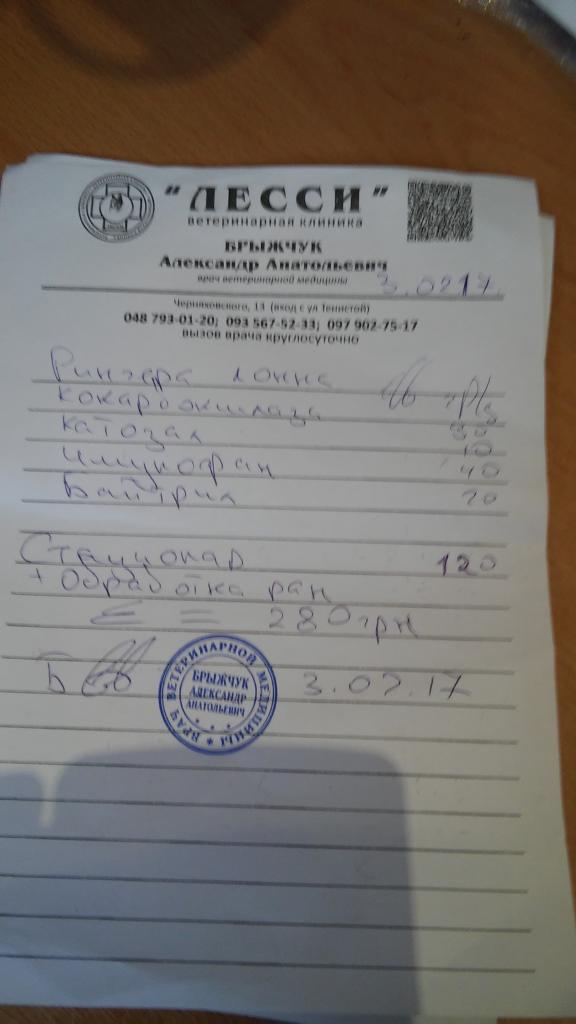 "ЛЕССИ"
ветеринарная клиника
БРЫЖЧУК
Александр Анатольевич
врач ветеринарной медицины
3.0217.
Черняховского, 13 (вход с ул Тенистой)
048 793-01-20; 093 567-52-33; 097 902-75-17
вызов врача круглосуточно
Рингера
кокарбоксилаза
Катозал 10
Имунофан 40
Байтрил 20
Стационар 120
+ обработка ран
= 280 грн
3.02.17
ВРАЧ ВЕТЕРИНАРНОЙ МЕДИЦИНЫ
БРЫЖЧУК
АЛЕКСАНДР
АНАТОЛЬЕВИЧ